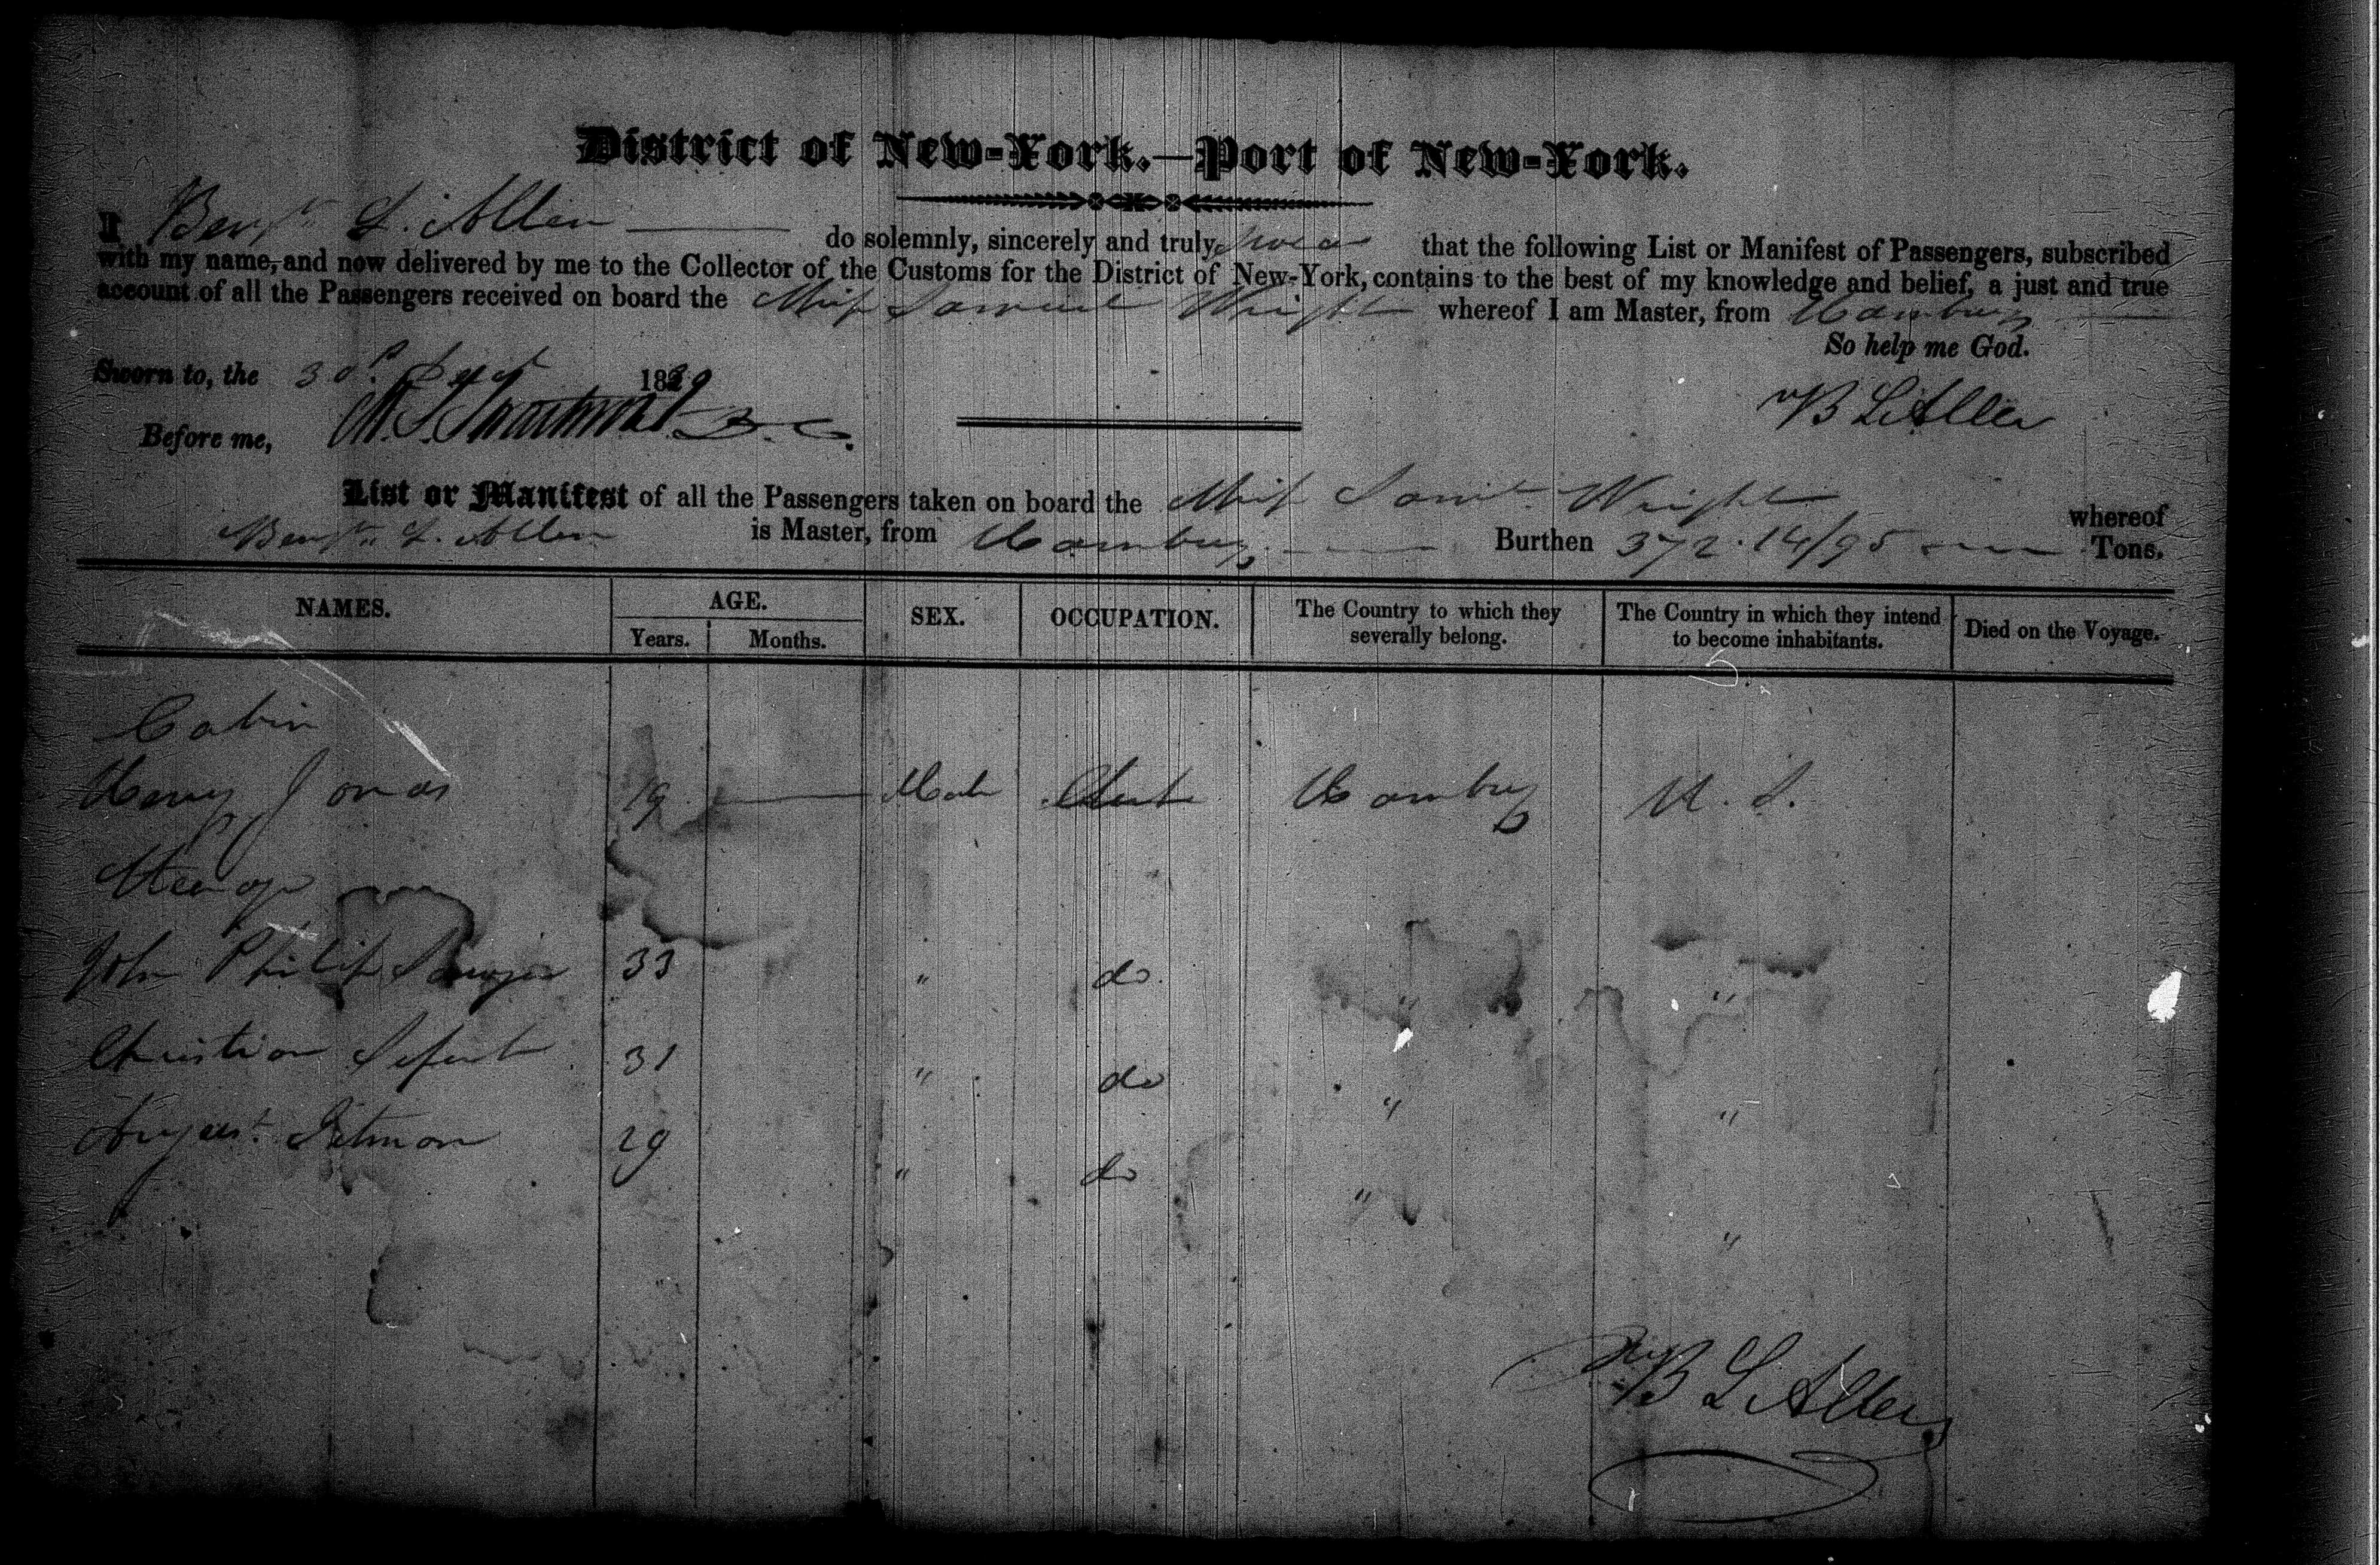 District of New-York.—Port of New-York.
I Benjn L. Allen do solemnly, sincerely and truly swear that the following List or Manifest of Passengers, subscribed
with my name, and now delivered by me to the Collector of the Customs for the District of New-York, contains to the best of my knowledge and belief, a just and true
account of all the Passengers received on board the Ship Samuel Wright whereof I am Master, from Hamburg
So help me God.
Sworn to, the 30th Sept 1829
Before me, D. C.
B L Allen
List or Manifest of all the Passengers taken on board the Ship Saml Wright whereof
Benjn L. Allen is Master, from Hamburg Burthen 372.14/95 Tons.
NAMES. AGE. SEX. OCCUPATION. The Country to which they severally belong. The Country in which they intend to become inhabitants. Died on the Voyage.
Years. Months.
Cabin
Henry Jonas 19 Male Clerk Hamburg U. S.
Steerage
John Philip 33 " do " "
Christian 31 " do " "
August 29 " do " "
B L Allen